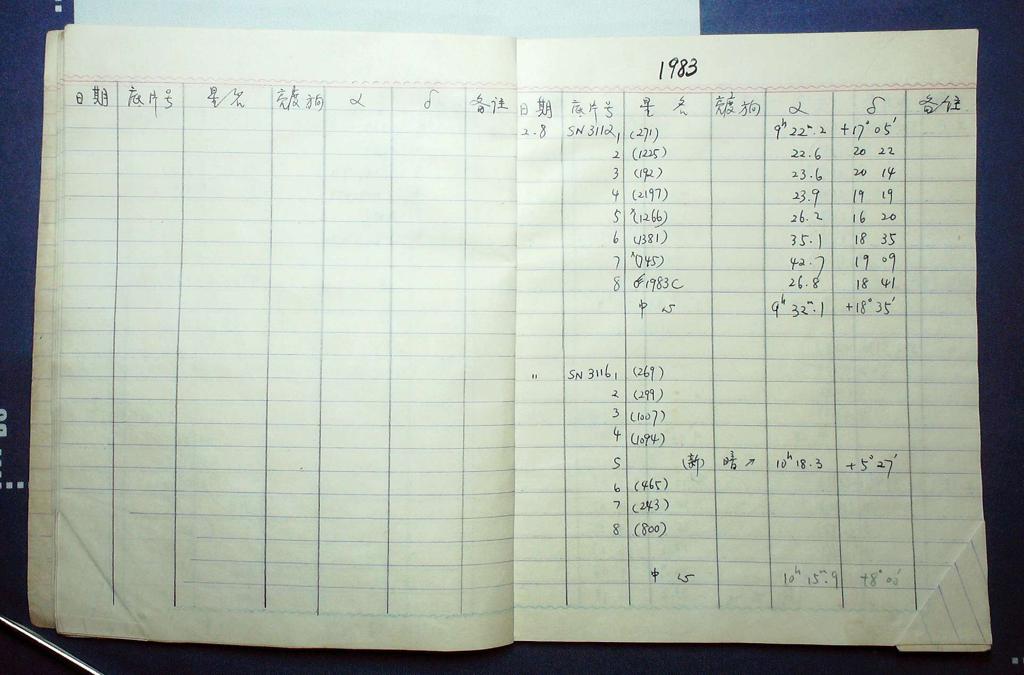 1983
日期 底片号 星名 亮度 方向 α δ 备注
日期 底片号 星名 亮度 方向 α δ 备注
2.8 SN3112, 1 (271) 9h 22m.2 +17° 05′
2 (1225) 22.6 20 22
3 (192) 23.6 20 14
4 (2197) 23.9 19 19
5 (1266) 26.2 16 20
6 (1381) 35.1 18 35
7 (745) 42.7 19 09
8 1983C 26.8 18 41
中心 9h 32m.1 +18° 35′
" SN3116, 1 (269)
2 (299)
3 (1007)
4 (1094)
5 (新) 暗 ↗ 10h 18.3 +5° 27′
6 (465)
7 (243)
8 (800)
中心 10h 15m.9 +8° 00′